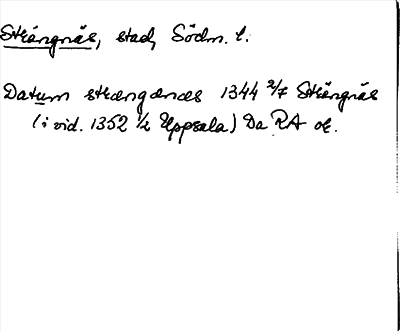 Strängnäs, stad, Södm. l.
Datum strengenæs 1344 2/7 Strängnäs
(i vid. 1352 1/2 Uppsala) Da RA or.